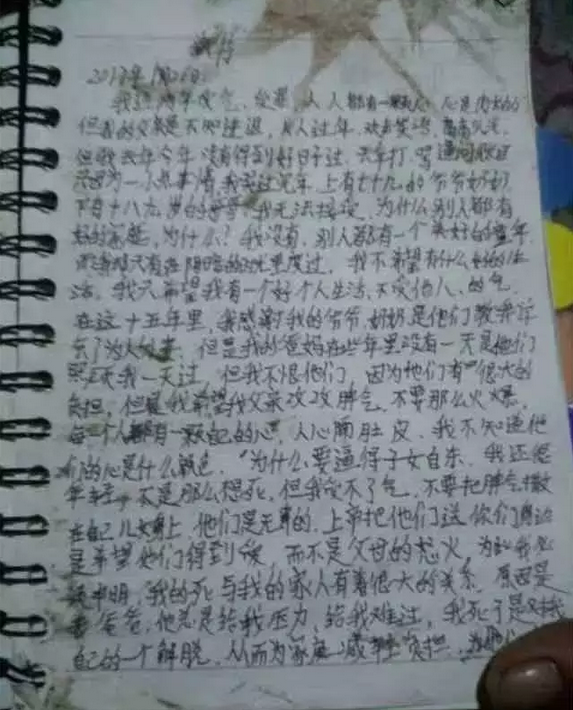 2017年1月26日
我这两年受气、受罪、人人都有一颗心 心是肉长的
但我的父亲是不知进退，别人过年，欢声笑语，高高兴兴，
但我去年今年没有得到好日子过，去年打、骂
只因为一小点事情，我 过完年 上有七十九的爷爷奶奶
下有十八九岁的哥哥，我无法接受，为什么别人都有
好的家庭，为什么？我没有，别人都有一个美好的童年，
而我却只有在阴暗的 里度过，我不希望有什么好的生
活，我只希望我有一个好个人生活，不受他人的气，
在这十五年里，我感谢我的爷爷，奶奶是他们教我许
去了为人处事，但是我的爸妈在些年里没有一天是他们
天我一天过，但我不恨他们，因为他们有很大的
负担，但是我希望我父亲改改脾气，不要那么火爆，
每一个人都有一颗自己的心，人心隔肚皮，我不知道他
们的心是什么颜色，“为什么要逼得子女自杀，我还很
年轻，不是那么想死，但我受不了气，不要把脾气撒
在自己儿女身上，他们是无辜的，上帝把他们送你们身边
是希望他们得到爱，而不是父母的怒火，为此我必
须申明，我的死与我的家人有着很大的关系，原因是
爸爸，他总是给我压力，给我难过，我死了是对我
自己的一个解脱，从而为家庭减轻负担，